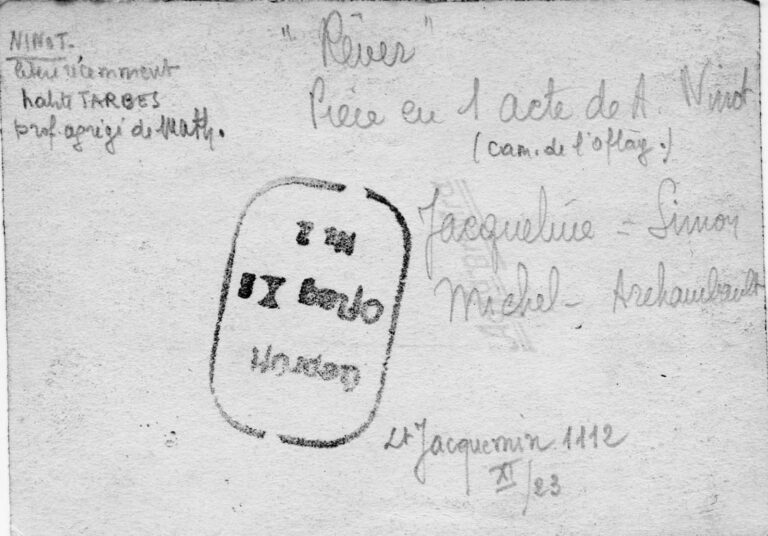 NINOT.
récemment
habite TARBES
prof agrégé de Math.
"Rêver"
Pièce en 1 acte de A. Ninot
(cam. de l'oflag.)
Jacqueline = Simon
Michel - Archambault
Geprüft
Oflag X B
Nr. 2
Lt Jacquemin 1112
XI/23